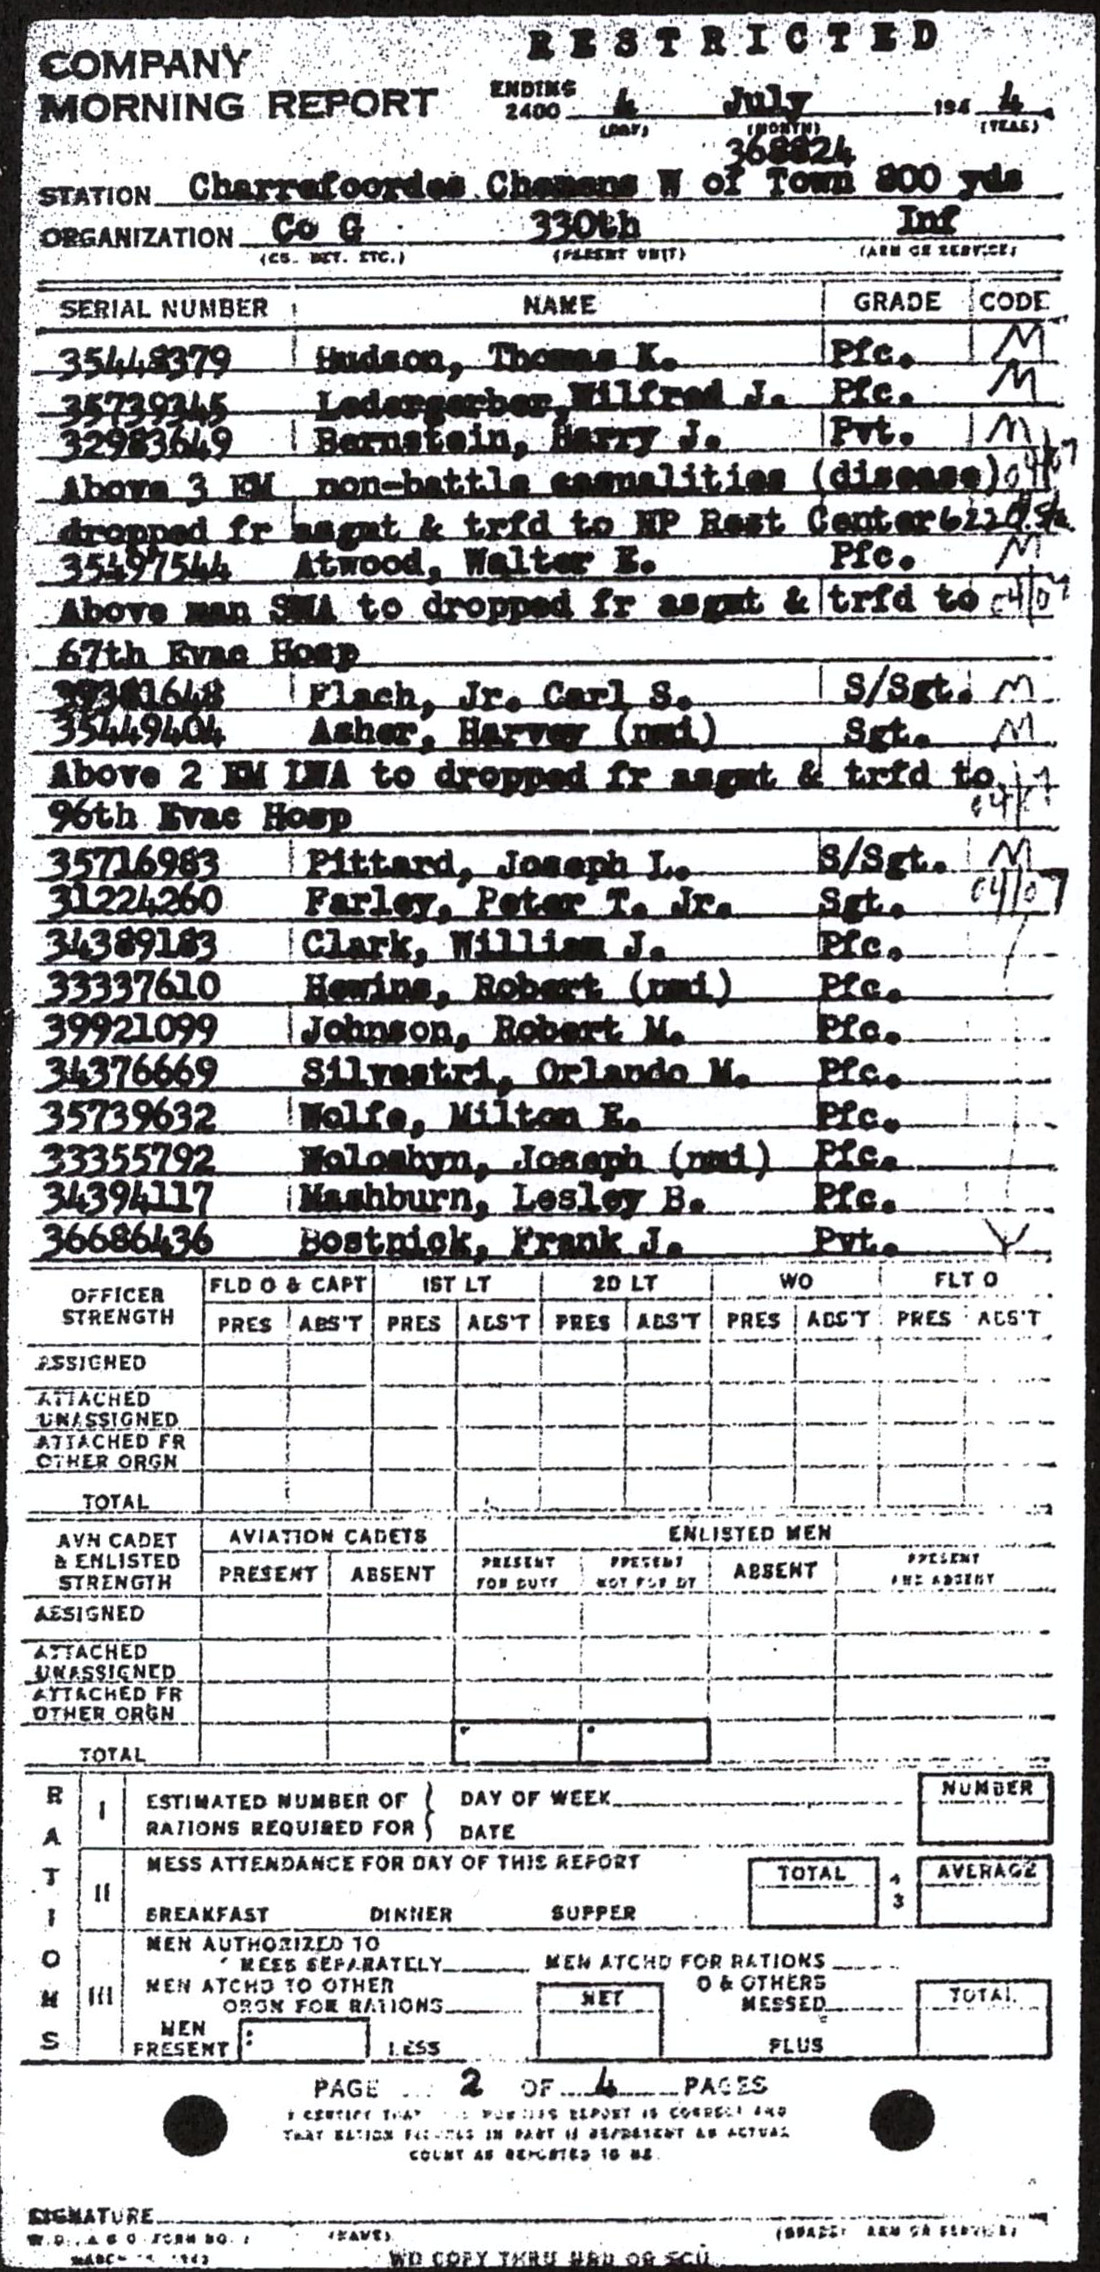 RESTRICTED
COMPANY
MORNING REPORT
ENDING 2400 4 July 194 4
(DAY) (MONTH) (YEAR)
368824
STATION Charrafoordes Chemens W of Town 800 yds
ORGANIZATION Co G 330th Inf
(CO. DET. ETC.) (PARENT UNIT) (ARM OR SERVICE)
SERIAL NUMBER NAME GRADE CODE
35448379 Hudson, Thomas K. Pfc. M
35739345 Ledergerber, Wilfred J. Pfc. M
32983649 Bernstein, Harry J. Pvt. M
Above 3 EM non-battle casualities (disease) 04/07
dropped fr asgmt & trfd to NP Rest Center 622
35497544 Atwood, Walter E. Pfc. M
Above man SWA to dropped fr asgmt & trfd to 04/07
67th Evac Hosp
39381648 Flach, Jr. Carl S. S/Sgt. M
35449404 Asher, Harvey (nmi) Sgt. M
Above 2 EM LWA to dropped fr asgmt & trfd to
96th Evac Hosp 04/07
35716983 Pittard, Joseph L. S/Sgt. M
31224260 Farley, Peter T. Jr. Sgt. 04/07
34389183 Clark, William J. Pfc.
33337610 Hewins, Robert (nmi) Pfc.
39921099 Johnson, Robert M. Pfc.
34376669 Silvestri, Orlando M. Pfc.
35739632 Wolfe, Milton E. Pfc.
33355792 Woloshyn, Joseph (nmi) Pfc.
34394117 Mashburn, Lesley B. Pfc.
36686436 Bostnick, Frank J. Pvt.
OFFICER STRENGTH FLD O & CAPT 1ST LT 2D LT WO FLT O
PRES ABS'T PRES ABS'T PRES ABS'T PRES ABS'T PRES ABS'T
ASSIGNED
ATTACHED UNASSIGNED
ATTACHED FR OTHER ORGN
TOTAL
AVN CADET & ENLISTED STRENGTH AVIATION CADETS ENLISTED MEN
PRESENT ABSENT PRESENT FOR DUTY PRESENT NOT FOR DY ABSENT PRESENT AND ABSENT
ASSIGNED
ATTACHED UNASSIGNED
ATTACHED FR OTHER ORGN
TOTAL
RATIONS
I ESTIMATED NUMBER OF RATIONS REQUIRED FOR DAY OF WEEK NUMBER
DATE
II MESS ATTENDANCE FOR DAY OF THIS REPORT TOTAL ÷ 3 AVERAGE
BREAKFAST DINNER SUPPER
III MEN AUTHORIZED TO MESS SEPARATELY MEN ATCHD FOR RATIONS
MEN ATCHD TO OTHER ORGN FOR RATIONS NET O & OTHERS MESSED TOTAL
MEN PRESENT LESS PLUS
PAGE 2 OF 4 PAGES
I CERTIFY THAT THIS MORNING REPORT IS CORRECT AND
THAT RATION FIGURES IN PART II REPRESENT AN ACTUAL
COUNT AS REPORTED TO ME
SIGNATURE
W.D., A.G.O. FORM NO. 1 (NAME) (GRADE) ARM OR SERVICE)
MARCH 1943 WD COPY THRU MRU OR SCU